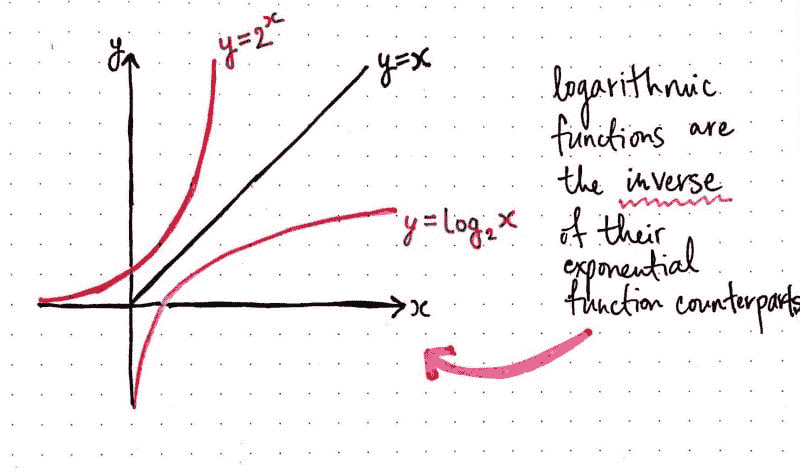 y
y=2ˣ
y=x
y=log₂x
x
logarithmic
functions are
the inverse
of their
exponential
function counterparts